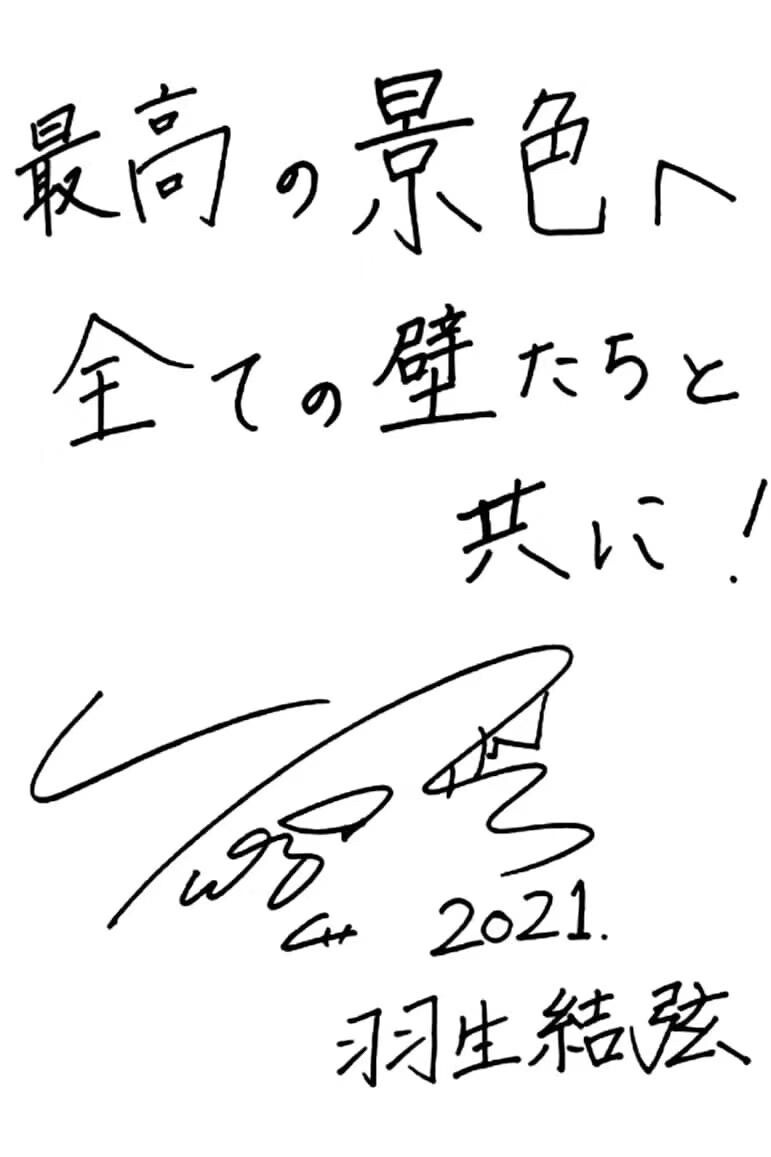 最高の景色へ
全ての壁たちと
共に!
2021.
羽生結弦